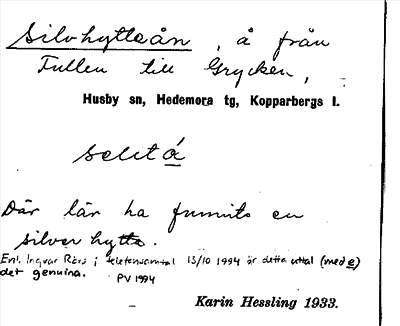 Silvhytteån, å från
Fullen till Grycken,
Husby sn, Hedemora tg, Kopparbergs l.
sełıtá
Där lär ha funnits en
silverhytta.
Enl. Ingvar Rörs i telefonsamtal 13/10 1994 är detta uttal (med e)
det genuina. PV 1994
Karin Hessling 1933.